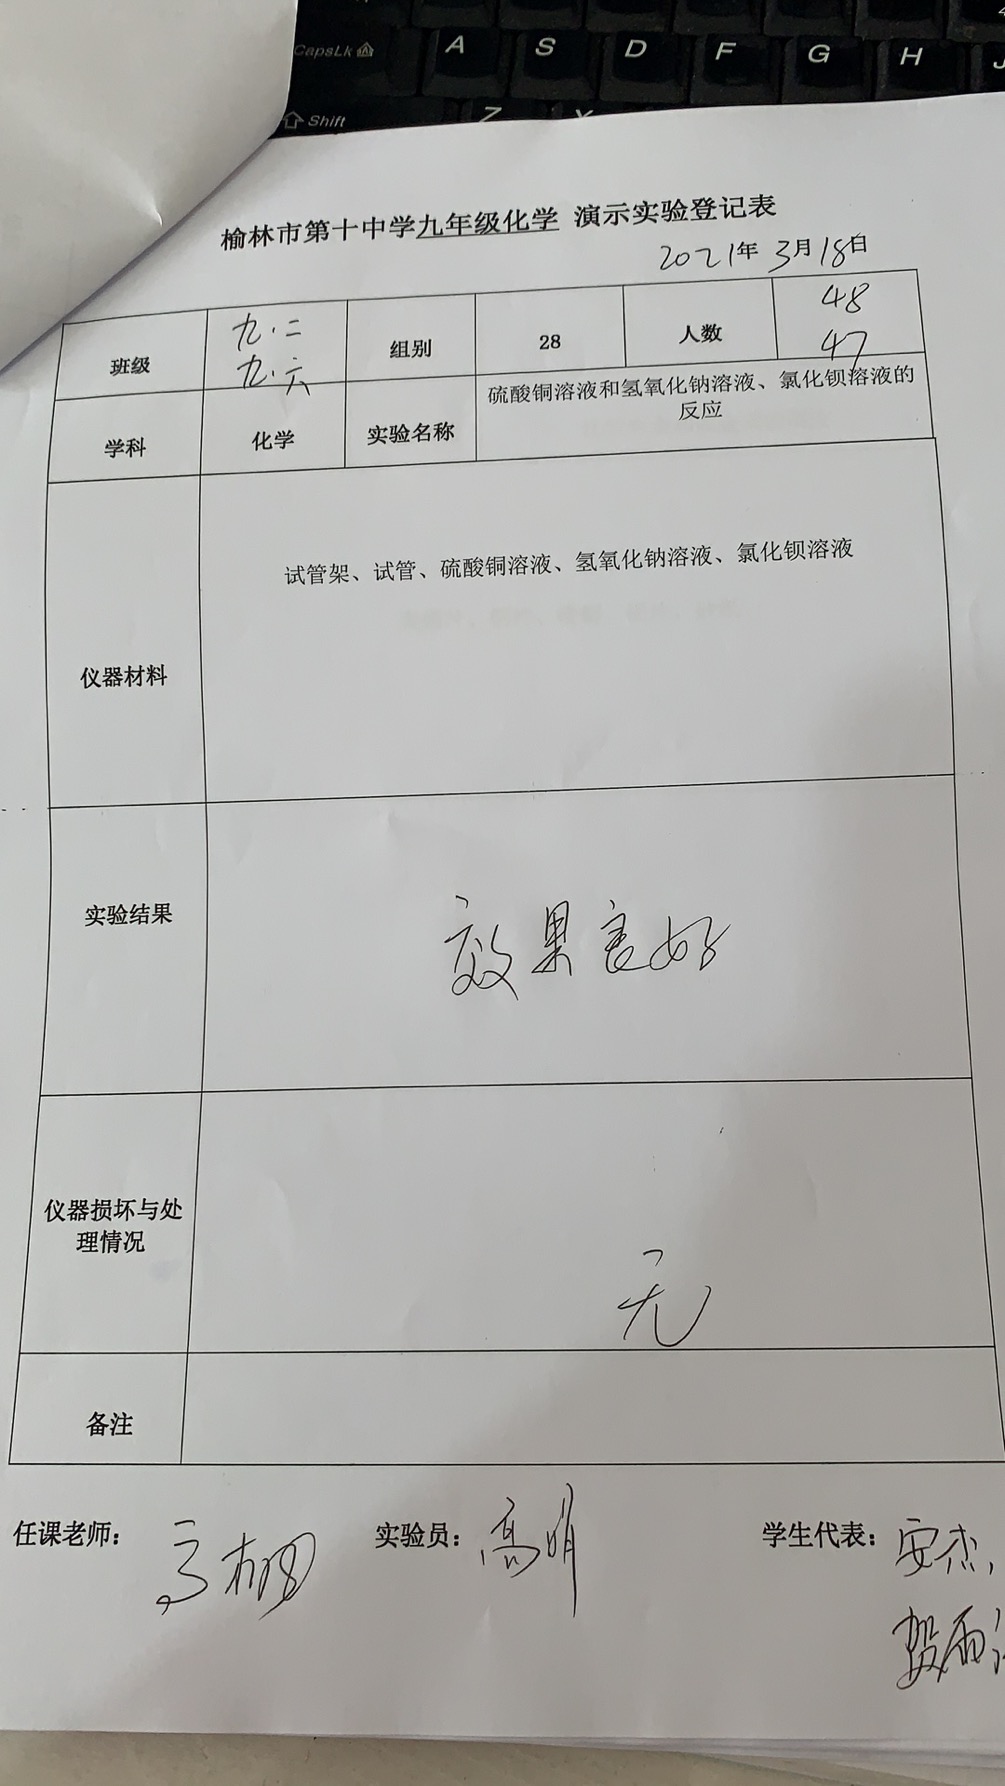 CapsLk A S D F G H J
Shift Z X
榆林市第十中学九年级化学 演示实验登记表
2021年 3月18日
班级 九.二 组别 28 人数 48
九.六 47
学科 化学 实验名称 硫酸铜溶液和氢氧化钠溶液、氯化钡溶液的
反应
仪器材料 试管架、试管、硫酸铜溶液、氢氧化钠溶液、氯化钡溶液
实验结果 效果良好
仪器损坏与处
理情况 无
备注
任课老师: 实验员: 高明 学生代表: 安杰,